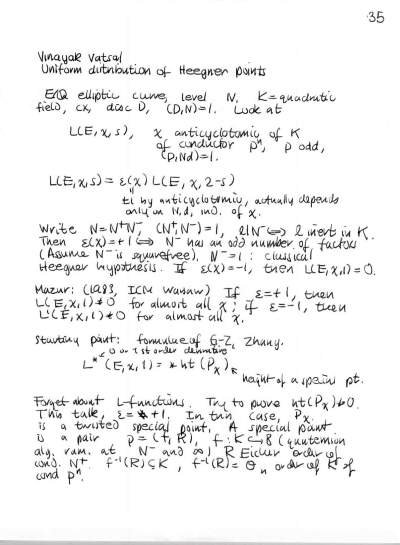 35
Vinayak Vatsal
Uniform distribution of Heegner points
E/Q elliptic curve, level N. K = quadratic
field, cx, disc D, (D,N)=1. Look at
L(E, χ, s), χ anticyclotomic of K
of conductor pⁿ, p odd,
(p, Nd)=1.
L(E, χ, s) = ε(χ) L(E, χ, 2-s)
±1 by anticyclotomic, actually depends
only on N, d, ind. of χ.
Write N = N⁺N⁻, (N⁺, N⁻)=1, l|N⁻ ⟺ l inert in K.
Then ε(χ)=+1 ⟺ N⁻ has an odd number of factors
(Assume N⁻ is squarefree). N⁻=1: classical
Heegner hypothesis. If ε(χ)=-1, then L(E, χ, 1)=0.
Mazur: (1983, ICM Warsaw) If ε=+1, then
L(E, χ, 1)≠0 for almost all χ; if ε=-1, then
L'(E, χ, 1)≠0 for almost all χ.
Starting point: formulae of G-Z, Zhang.
0 or 1st order derivative
L*(E, χ, 1) = * ht(Pχ)
height of a special pt.
Forget about L-functions. Try to prove ht(Pχ)≠0.
This talk, ε=+1. In this case, Pχ
is a twisted special point. A special point
is a pair P=(f, R), f: K ↪ B (quaternion
alg. ram. at N⁻ and ∞) R Eichler order of
cond. N⁺ f⁻¹(R) ⊆ K, f⁻¹(R) = Oₙ order of K of
cond pⁿ.